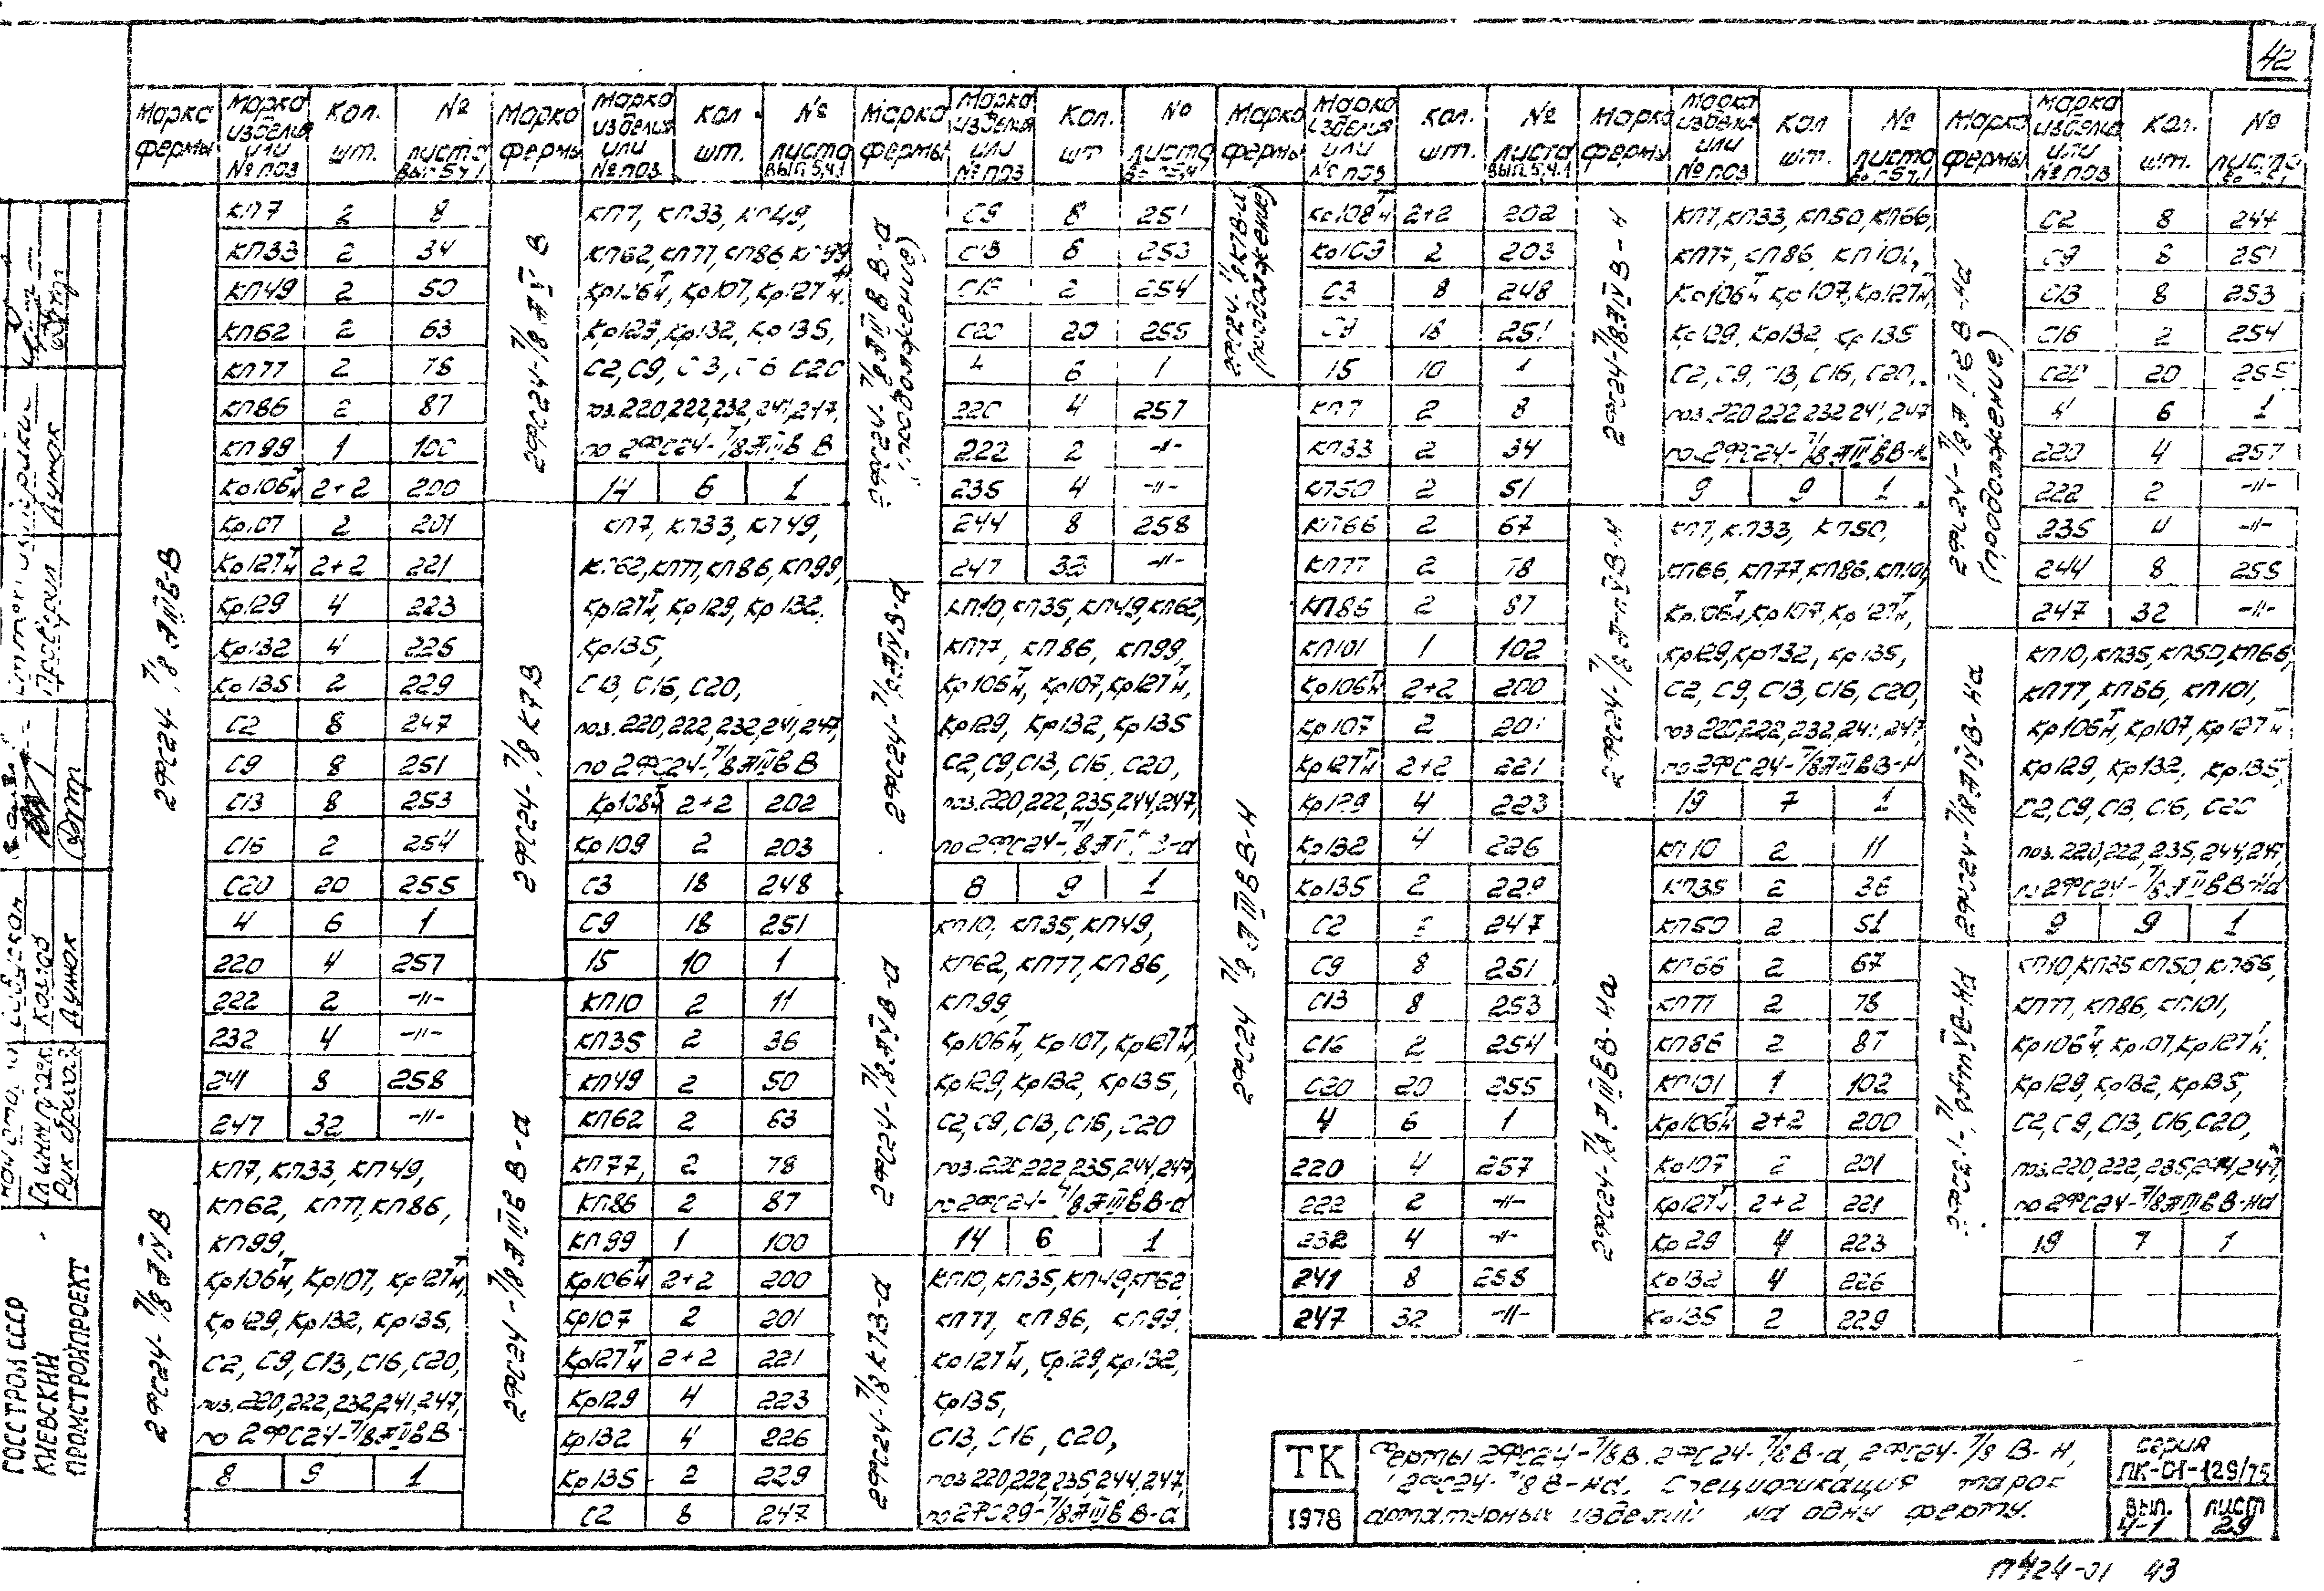 42
Марка фермы | Марка изделия или № поз | Кол. шт. | № листа вып 5 ч.1
2ФС24-7/8АIIIвВ
КП7 2 8
КП33 2 34
КП49 2 50
КП62 2 63
КП77 2 78
КП86 2 87
КП99 1 100
Кр106тн 2+2 200
Кр107 2 201
Кр127тн 2+2 221
Кр129 4 223
Кр132 4 226
Кр135 2 229
С2 8 247
С9 8 251
С13 8 253
С16 2 254
С20 20 255
4 6 1
220 4 257
222 2 -"-
232 4 -"-
241 8 258
247 32 -"-
2ФС24-7/8АIVВ
КП7, КП33, КП49,
КП62, КП77, КП86,
КП99,
Кр106тн, Кр107, Кр127тн,
Кр129, Кр132, Кр135,
С2, С9, С13, С16, С20,
поз. 220, 222, 232, 241, 247,
по 2ФС24-7/8АIIIвВ
8 9 1
Марка фермы | Марка изделия или № поз | Кол. шт. | № листа вып. 5, ч.1
КП7, КП33, КП49,
КП62, КП77, КП86, КП99,
Кр106тн, Кр107, Кр127тн,
Кр129, Кр132, Кр135,
С2, С9, С13, С16 С20
поз. 220, 222, 232, 241, 247,
по 2ФС24-7/8АIIIвВ
14 6 1
2ФС24-7/8К7В
КП7, КП33, КП49,
КП62, КП77, КП86, КП99,
Кр127тн, Кр129, Кр132,
Кр135,
С13, С16, С20,
поз. 220, 222, 232, 241, 247,
по 2ФС24-7/8АIIIвВ
Кр108тн 2+2 202
Кр109 2 203
С3 18 248
С9 18 251
15 10 1
2ФС24-7/8АIIIвВ-а
КП10 2 11
КП35 2 36
КП49 2 50
КП62 2 63
КП77, 2 78
КП86 2 87
КП99 1 100
Кр106тн 2+2 200
Кр107 2 201
Кр127тн 2+2 221
Кр129 4 223
Кр132 4 226
Кр135 2 229
С2 8 247
Марка фермы | Марка изделия или № поз | Кол. шт | № листа
2ФС24-7/8АIIIвВ-а (продолжение)
С9 8 251
С13 8 253
С16 2 254
С20 20 255
4 6 1
220 4 257
222 2 -"-
235 4 -"-
244 8 258
247 32 -"-
2ФС24-7/8АIVВ-а
КП10, КП35, КП49, КП62,
КП77, КП86, КП99,
Кр106тн, Кр107, Кр127тн,
Кр129, Кр132, Кр135
С2, С9, С13, С16, С20,
поз. 220, 222, 235, 244, 247,
8 9 1
КП10, КП35, КП49,
КП62, КП77, КП86,
КП99,
Кр106тн, Кр107, Кр127тн,
Кр129, Кр132, Кр135,
С2, С9, С13, С16, С20
поз. 220 222, 235, 244, 247,
по 2ФС24-7/8АIIIвВ-а
14 6 1
КП10, КП35, КП49, КП62,
КП77, КП86, КП99,
Кр127тн, Кр129, Кр132,
Кр135,
С13, С16, С20,
поз. 220, 222, 235, 244, 247,
по 2ФС29-7/8АIIIвВ-а
Марка фермы | Марка изделия или № поз | Кол. шт. | № листа вып. 5, ч.1
(продолжение)
Кр108тн 2+2 202
Кр109 2 203
С3 8 248
С9 18 251
15 10 1
2ФС24-7/8АIIIвВ-Н
КП7 2 8
КП33 2 34
КП50 2 51
КП66 2 67
КП77 2 78
КП86 2 87
КП101 1 102
Кр106тн 2+2 200
Кр107 2 201
Кр127тн 2+2 221
Кр129 4 223
Кр132 4 226
Кр135 2 229
С2 247
С9 8 251
С13 8 253
С16 2 254
С20 20 255
4 6 1
220 4 257
222 2 -"-
232 4 -"-
241 8 258
247 32 -"-
Марка фермы | Марка изделия или № поз | Кол шт. | № листа
2ФС24-7/8АIVВ-Н
КП7, КП33, КП50, КП66,
КП77, КП86, КП101,
Кр106тн Кр107, Кр127тн,
Кр129, Кр132, Кр135
С2, С9, С13, С16, С20,
поз. 220 222 232 241, 247
по 2ФС24-7/8АIIIвВ-Н
9 9 1
КП7, КП33, КП50,
КП66, КП77, КП86, КП101,
Кр106тн, Кр107, Кр127тн,
Кр129, Кр132, Кр135,
С2, С9, С13, С16, С20,
поз 220, 222, 232, 241, 247,
по 2ФС24-7/8АIIIвВ-Н
19 7 1
2ФС24-7/8АIIIвВ-На
КП10 2 11
КП35 2 36
КП50 2 51
КП66 2 67
КП77 2 78
КП86 2 87
КП101 1 102
Кр106тн 2+2 200
Кр107 2 201
Кр127тн 2+2 221
Кр129 4 223
Кр132 4 226
Кр135 2 229
Марка фермы | Марка изделия или № поз | Кол. шт. | № листа
(продолжение)
С2 8 247
С9 8 251
С13 8 253
С16 2 254
С20 20 255
4 6 1
220 4 257
222 2 -"-
235 4 -"-
244 8 258
247 32 -"-
2ФС24-7/8АIVВ-На
КП10, КП35, КП50, КП66,
КП77, КП86, КП101,
Кр106тн, Кр107, Кр127тн
Кр129, Кр132, Кр135,
С2, С9, С13, С16, С20
поз. 220, 222, 235, 244, 247,
по 2ФС24-7/8АIIIвВ-На
9 9 1
КП10, КП35 КП50, КП66,
КП77, КП86, КП101,
Кр106тн, Кр107, Кр127тн,
Кр129, Кр132, Кр135,
С2, С9, С13, С16, С20,
поз. 220, 222, 235, 244, 247,
по 2ФС24-7/8АIIIвВ-На
19 7 1
ГОССТРОЙ СССР
КИЕВСКИЙ
ПРОМСТРОЙПРОЕКТ
Козлов
Дунюк
Проверил Дунюк
ТК
1978
Фермы 2ФС24-7/8В. 2ФС24-7/8В-а, 2ФС24-7/8 В-Н,
2ФС24-7/8В-На. Спецификация марок
арматурных изделий на одну ферму.
серия
ПК-01-129/75
вып. 4-1
лист 29
43